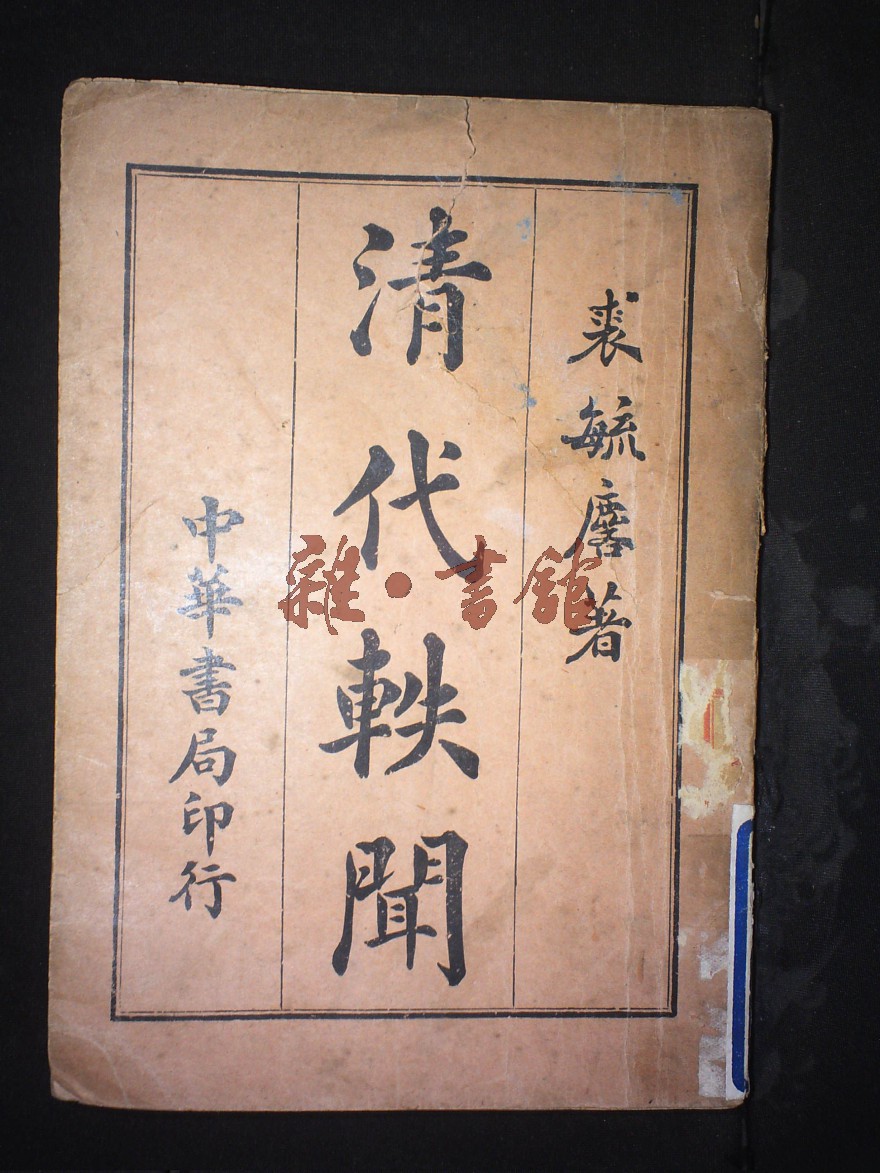 裘毓麐著
清代軼聞
中華書局印行
雜·書館